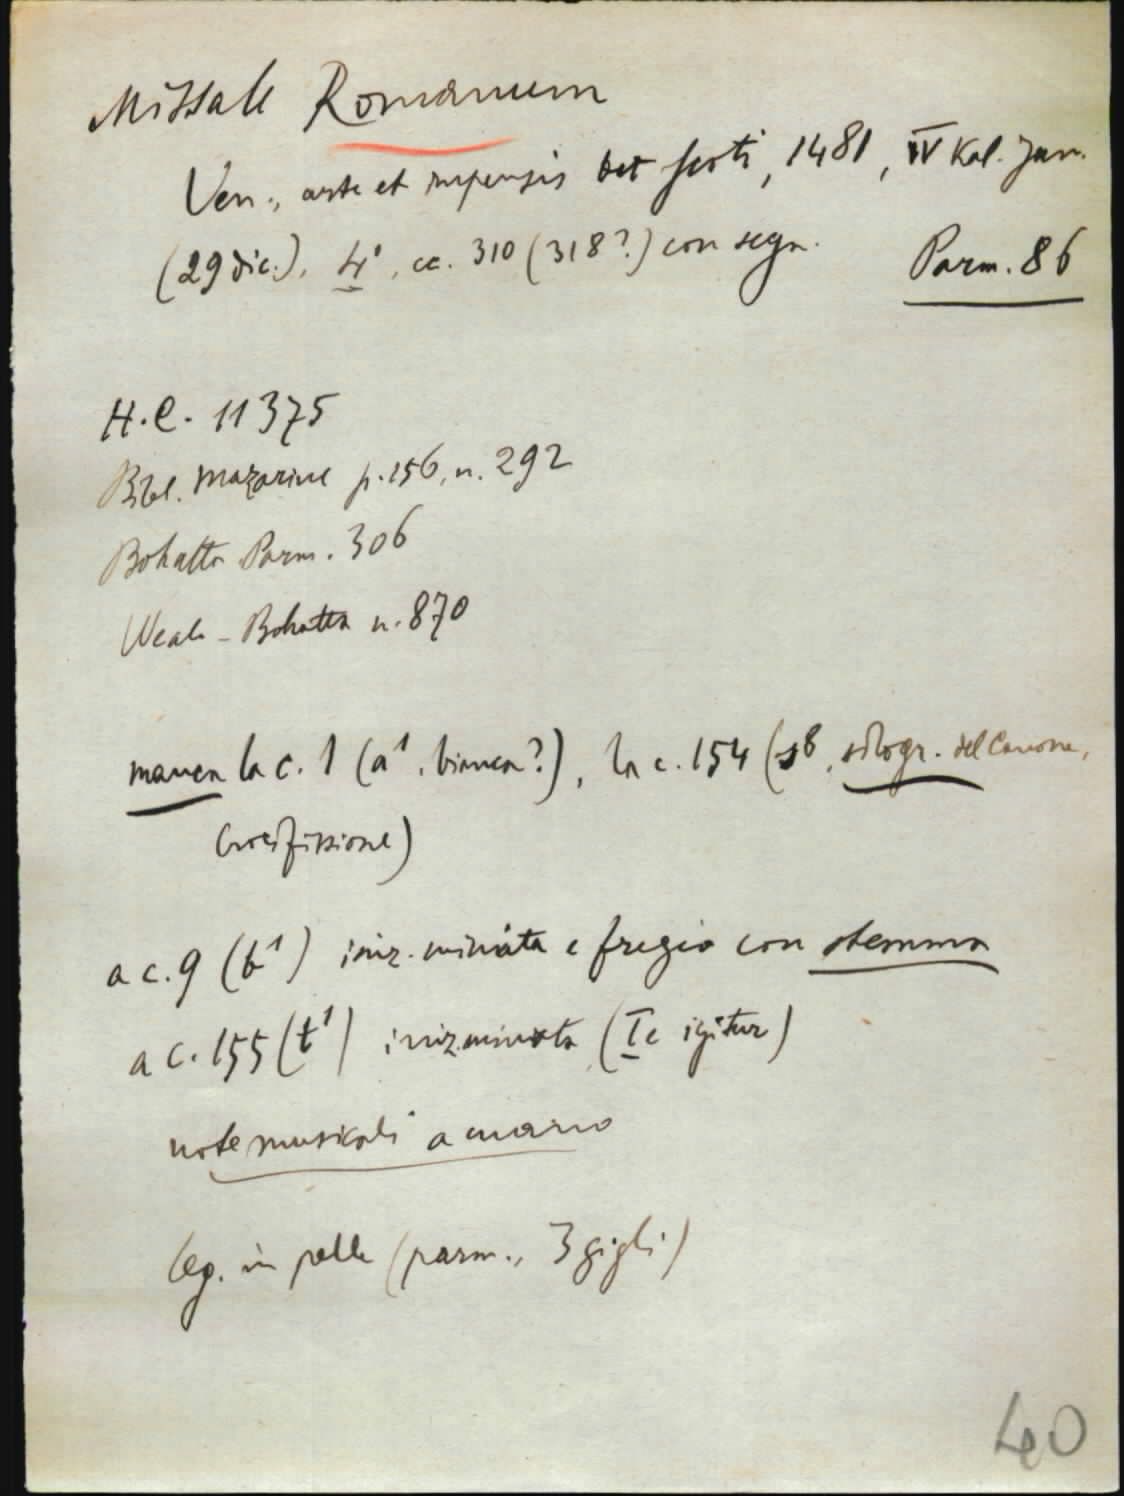 Missale Romanum
Ven., arte et impensis Oct Scoti, 1481, IV Kal. Jan.
(29 dic.). 4°, cc. 310 (318?) con segn.
Parm. 86
H.C. 11375
Bibl. Mazarine p. 156, n. 292
Bohatta Parm. 306
Weale - Bohatta n. 870
manca la c. 1 (a¹, bianca?), la c. 154 (s8, silogr. del Canone,
Crocifissione)
a c. 9 (b¹) iniz. miniata e fregio con stemma
a c. 155 (t¹) iniz. miniata (Te igitur)
note musicali a mano
leg. in pelle (parm., 3 gigli)
40